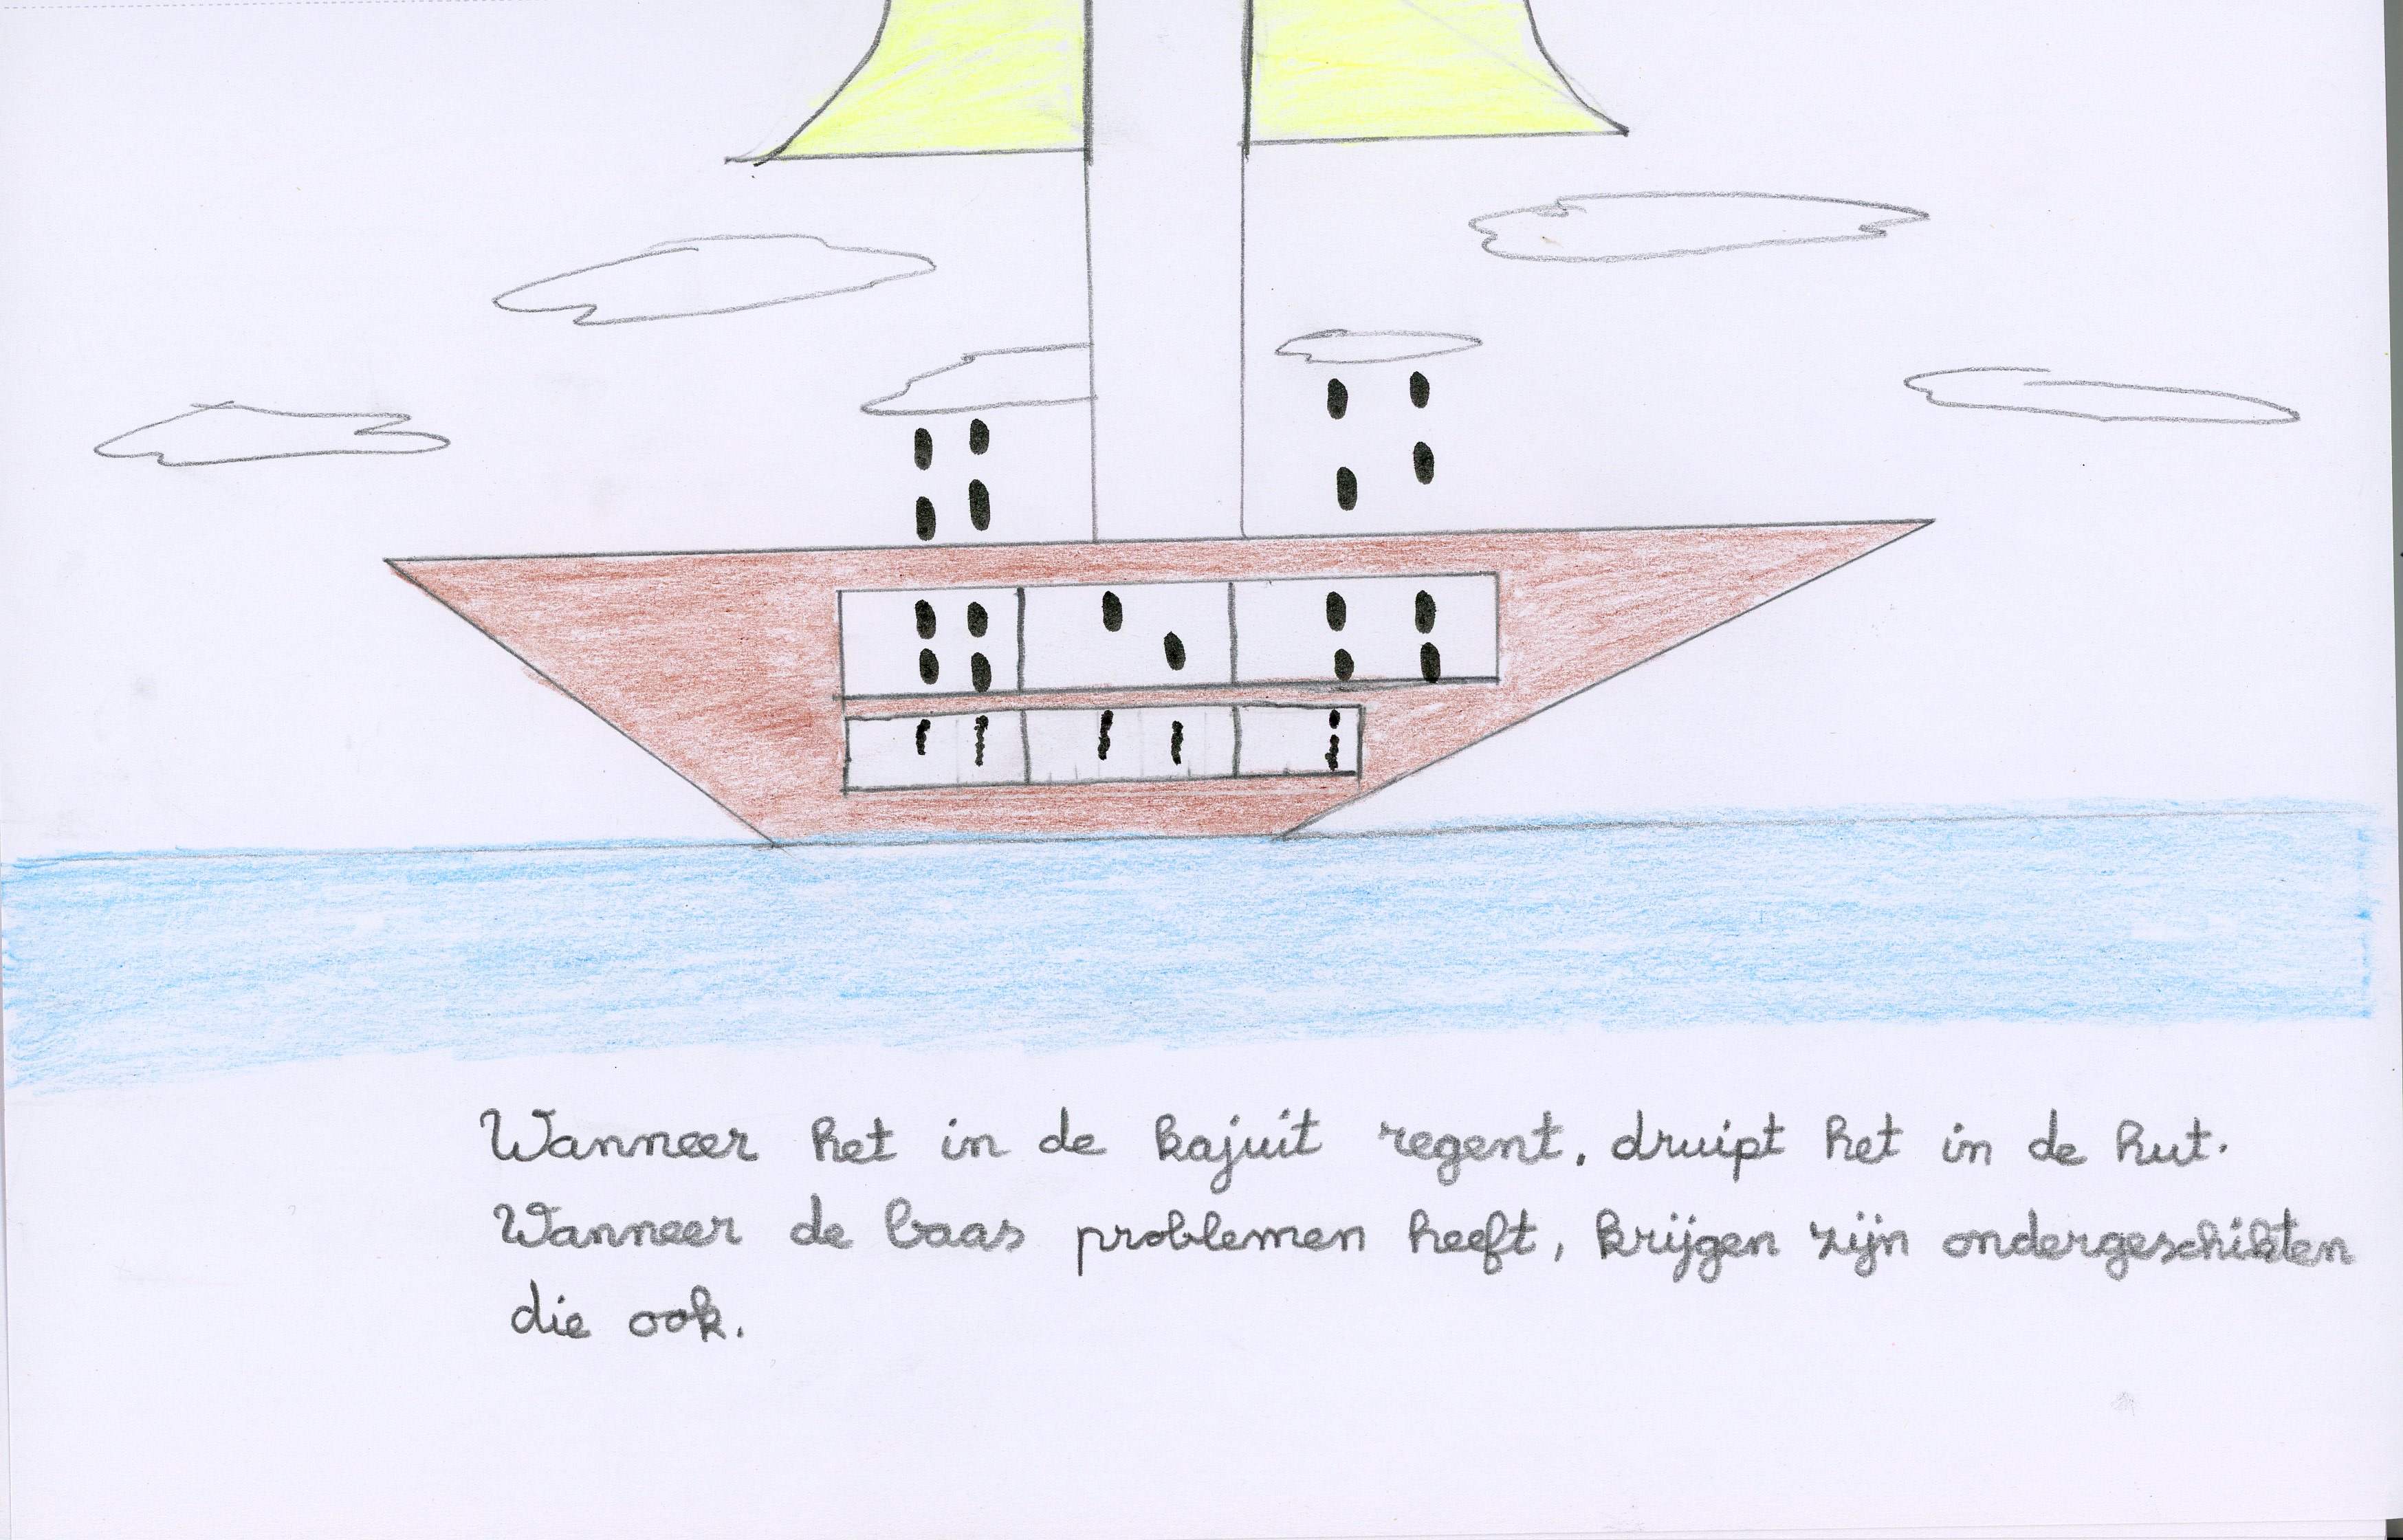 Wanneer het in de kajuit regent, druipt het in de hut.
Wanneer de baas problemen heeft, krijgen zijn ondergeschikten
die ook.